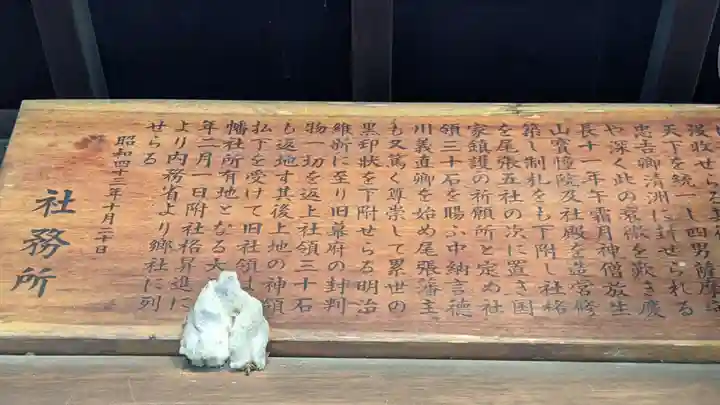 後収せらる
天下を統一し四男薩摩守
忠吉卿清洲に封せられる
や深く此の衰微を歎き慶
長十一年午霜月神僧放生
山寶憧院及社殿を造営修
築し制札をも下附し社格
を尾張五社の次に置き国
家鎮護の祈願所と定め社
領三十石を賜ふ中納言徳
川義直卿を始め尾張藩主
も又篤く尊崇して累世の
黒印状を下附せらる明治
維新に至り旧幕府の封判
物一切を返上社領三十石
も返地す其後上地の神領
払下を受けて旧社領
幡社所有地となる大
年二月一日附社格昇進に
より内務省より郷社に列
せらる
昭和四十三年十月二十日
社務所